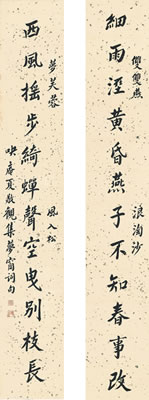 細雨溼黃昏燕子不知春事改
雙雙燕
浪淘沙
西風搖步綺蟬聲空曳別枝長
夢芙蓉
風入松
夏敬觀集夢窗詞句